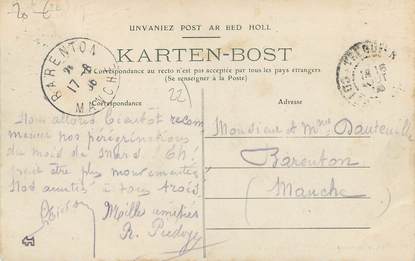 UNVANIEZ POST AR BED HOLL
KARTEN-BOST
Correspondance au recto n'est pas acceptée par tous les pays étrangers
(Se renseigner à la Poste)
Correspondance
Adresse
BARENTON
MANCHE
17 -8
06
22
Nous allons bientôt recom
mencer nos pérégrinations
du mois de mars. Eh!
peut être plus mouvementées
Nos amitiés à tous trois
Milles amitiés
R.
Monsieur et Mme Dauteuille
Barenton
(Manche)